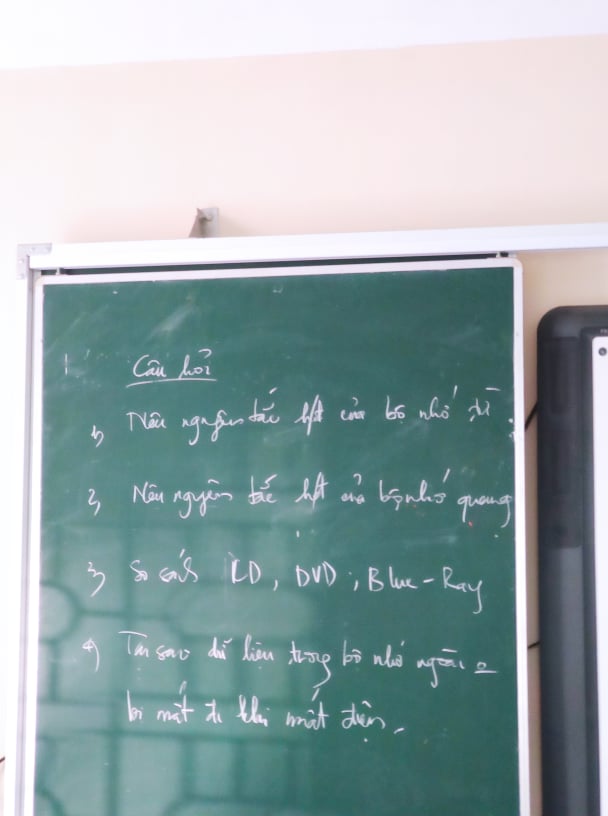 Câu hỏi
1, Nêu nguyên tắc hđ của bộ nhớ từ.
2, Nêu nguyên tắc hđ của bộ nhớ quang
3, So sánh CD, DVD, Blue-Ray
4, Tại sao dữ liệu trong bộ nhớ ngoài o
bị mất đi khi mất điện.